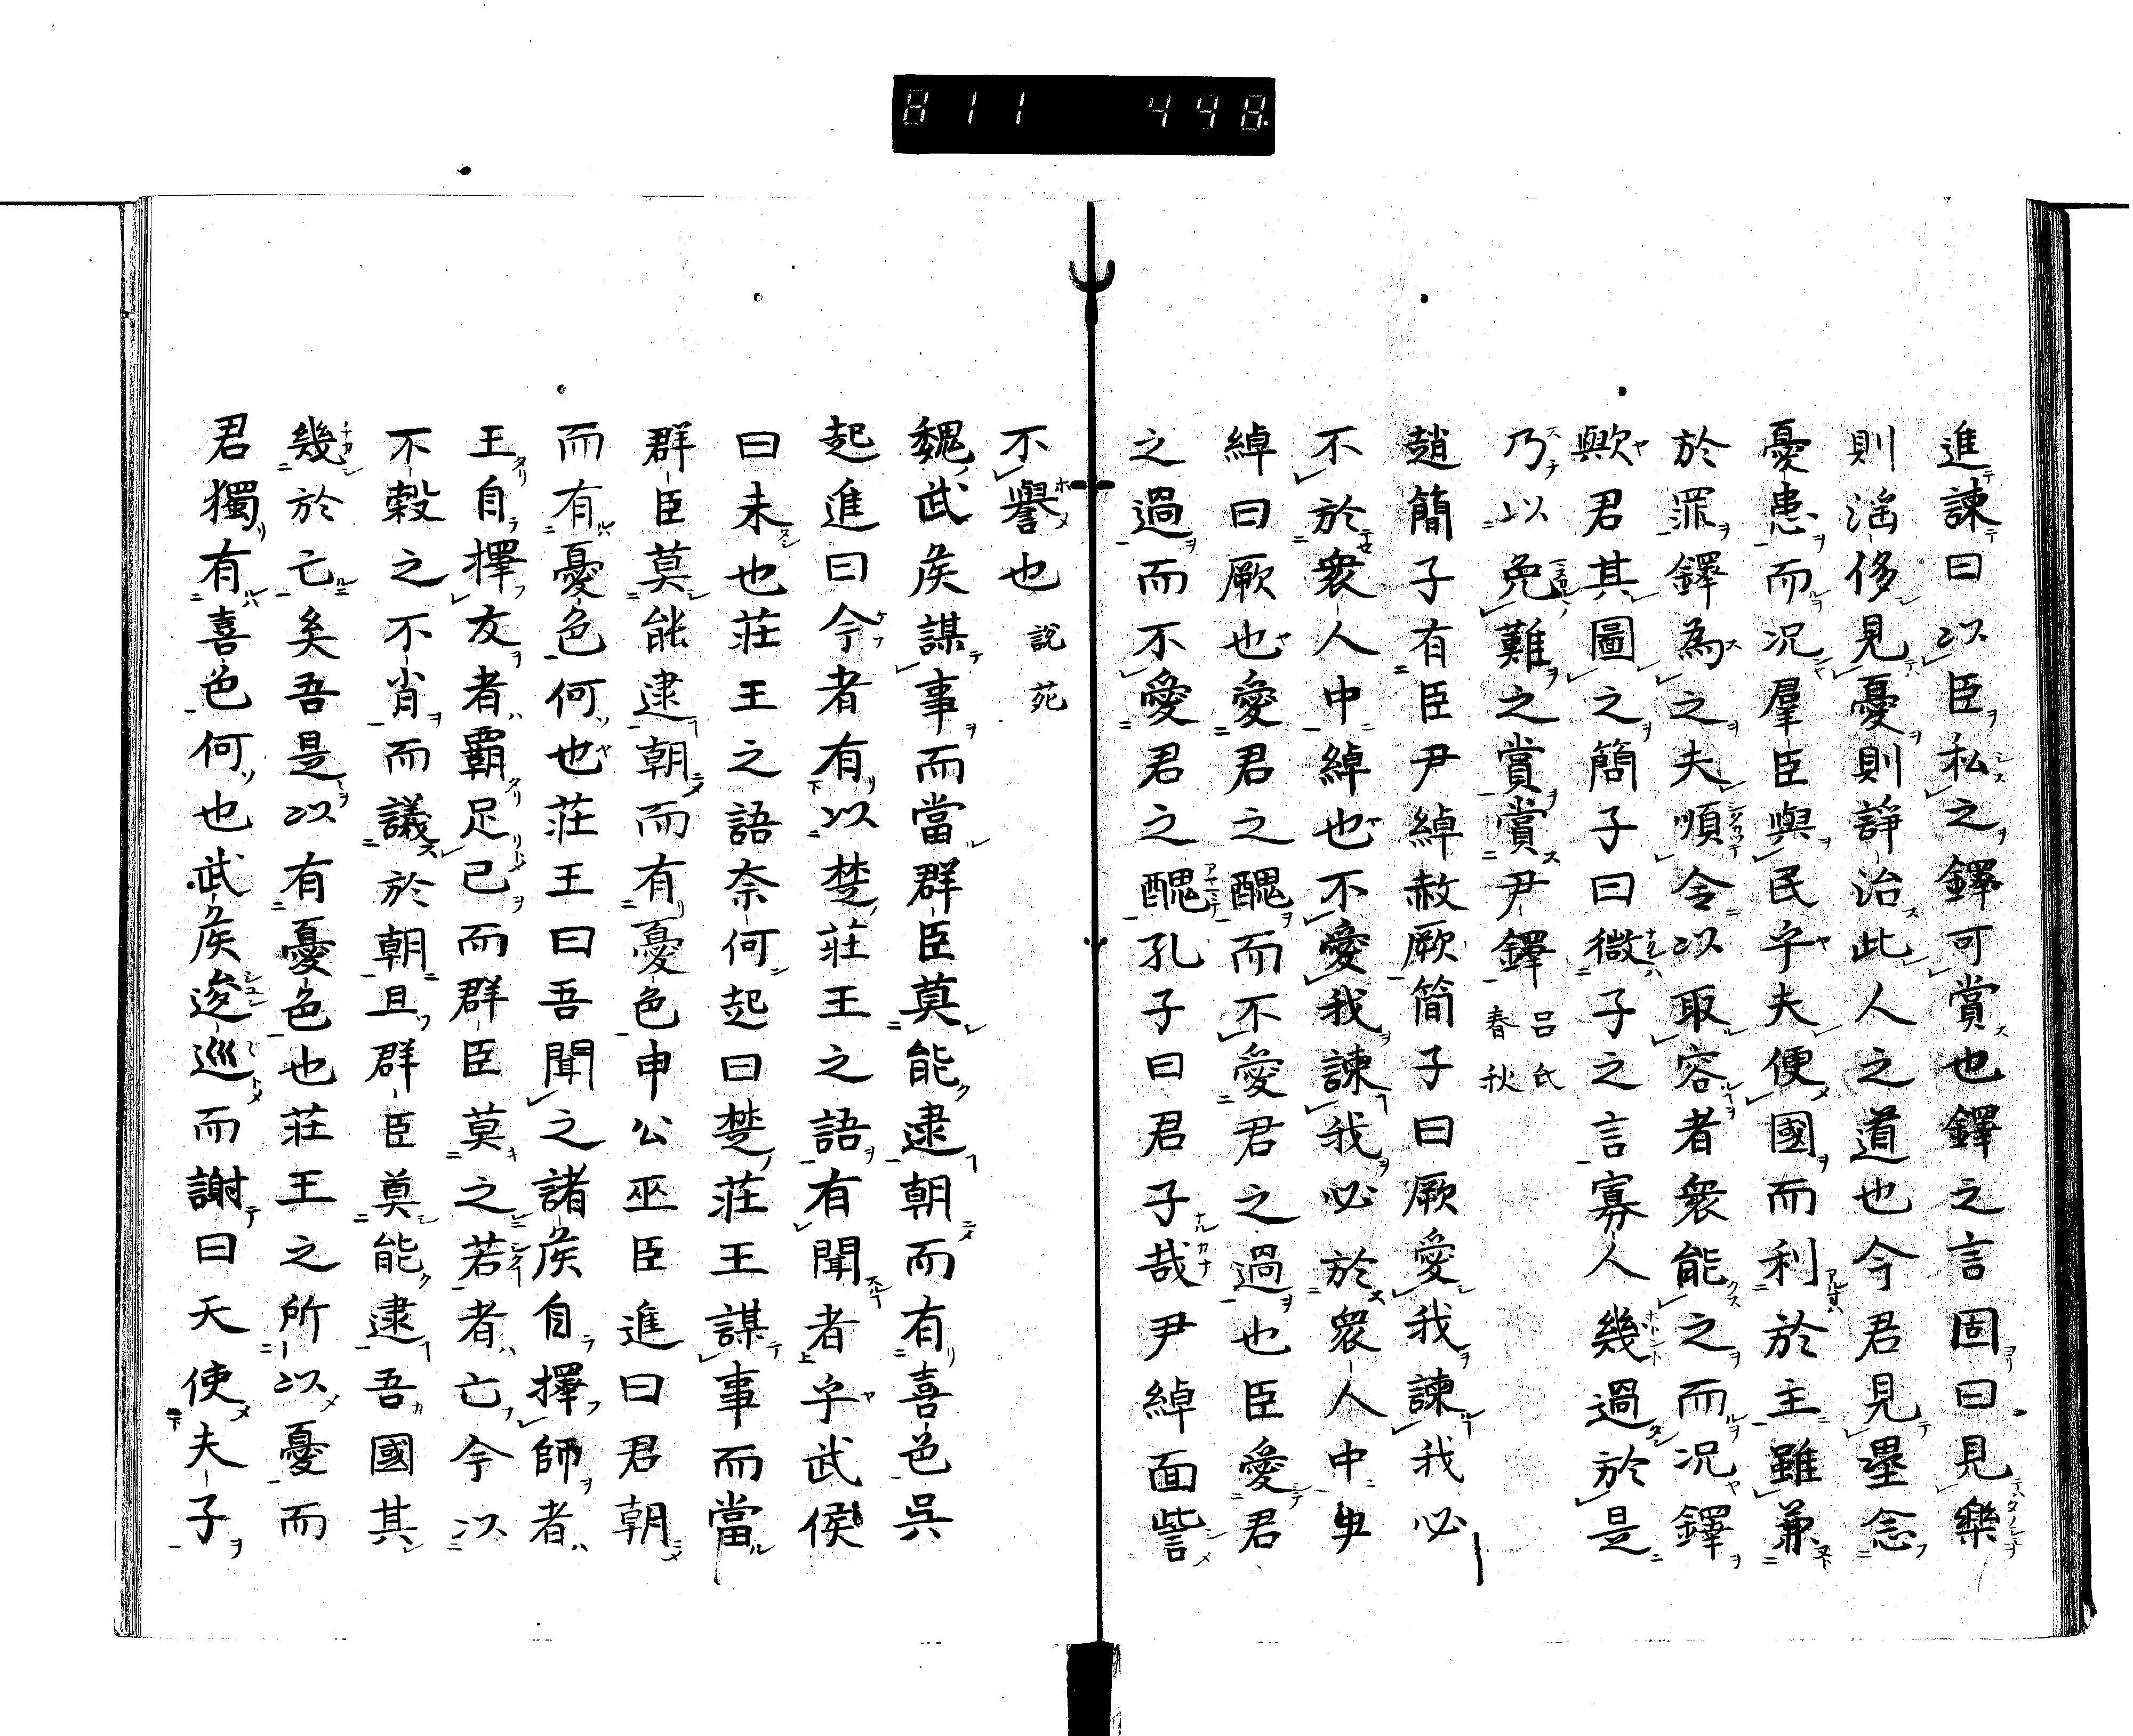 811 448
進諫曰以臣私之鐸可賞也鐸之言固曰見樂
則滛侈見憂則諍治此人之道也今君見壘念
憂患而况羣臣與民乎夫便國而利於主雖兼
於罪鐸為之夫順令以取容者衆能之而况鐸
歟君其圖之簡子曰微子之言寡人幾過於是
乃以免難之賞賞尹鐸 呂氏春秋
趙簡子有臣尹綽赦厥簡子曰厥愛我諫我必
不於衆人中綽也不愛我諫我必於衆人中尹
綽曰厥也愛君之醜而不愛君之過也臣愛君
之過而不愛君之醜孔子曰君子哉尹綽面訾
不譽也 說苑
魏武侯謀事而當群臣莫能逮朝而有喜色吳
起進曰今者有以楚莊王之語有聞者乎武侯
曰未也莊王之語奈何起曰楚莊王謀事而當
群臣莫能逮朝而有憂色申公巫臣進曰君朝
而有憂色何也莊王曰吾聞之諸侯自擇師者
王自擇友者霸足己而群臣莫之若者亡今以
不穀之不肖而議於朝且群臣莫能逮吾國其
幾於亡矣吾是以有憂色也莊王之所以憂而
君獨有喜色何也武侯逡巡而謝曰天使夫子